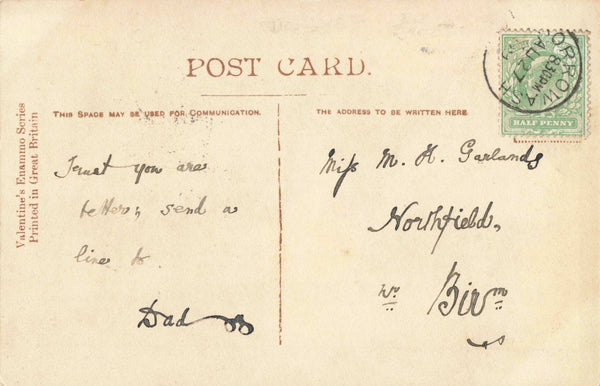 POST CARD.
THIS SPACE MAY BE USED FOR COMMUNICATION.
THE ADDRESS TO BE WRITTEN HERE
Valentine's Enammo Series
Printed in Great Britain
BORROWASH
8.30PM
AU 27
HALF PENNY
Trust you are
better, send a
line to
Dad
Miss M. H. Garlands
Northfield,
Nr
Birm